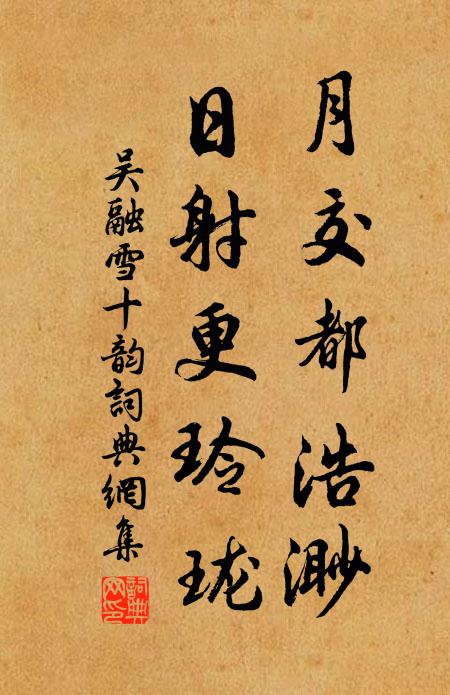 月交都浩渺
日射更玲珑
吴融雪十韵詞典網集
詞典网印